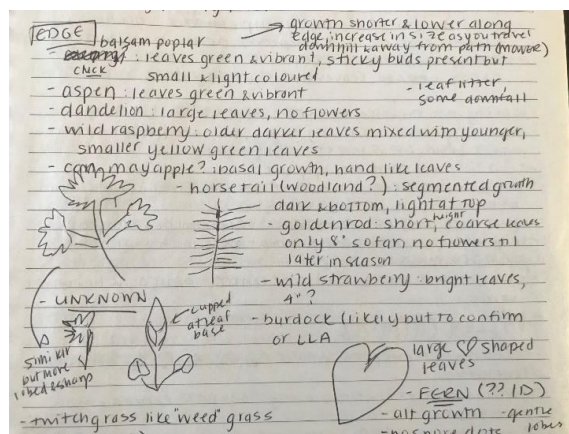 EDGE
balsam poplar
→ growth shorter & lower along
edge, increase in size as you travel
downhill & away from path (mower)
check
: leaves green & vibrant, sticky buds present but
small & light coloured
- aspen : leaves green & vibrant
- leaf litter,
some downfall
- dandelion : large leaves, no flowers
- wild raspberry : older darker leaves mixed with younger,
smaller yellow green leaves
- may apple? : basal growth, hand like leaves
- horsetail (woodland?) : segmented growth
dark @ bottom, light at top
- goldenrod : short height, coarse leaves
only 8" so far, no flowers til
later in season
- wild strawberry : bright leaves,
4" ?
- UNKNOWN
cupped
at leaf
base
- burdock (likely but to confirm
or LLA
similar
but more
lobed & sharp
large ♡ shaped
leaves
- FERN (?? ID)
- alt growth - gentle
lobes
- twitchgrass like "weed" grass
- no spore dots